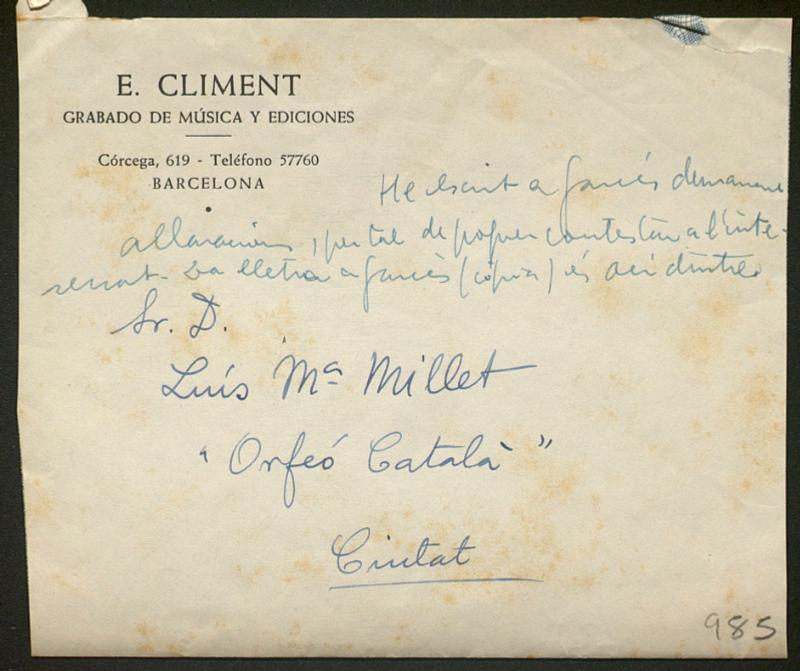 E. CLIMENT
GRABADO DE MÚSICA Y EDICIONES
Córcega, 619 - Teléfono 57760
BARCELONA
He escrit a Garcés demanant
aclaracions, per tal de poguer contestar a l'inte-
ressat. La lletra a Garcés (còpia) és ací dintre
Sr. D.
Luís Mª Millet
"Orfeó Català"
Ciutat
985